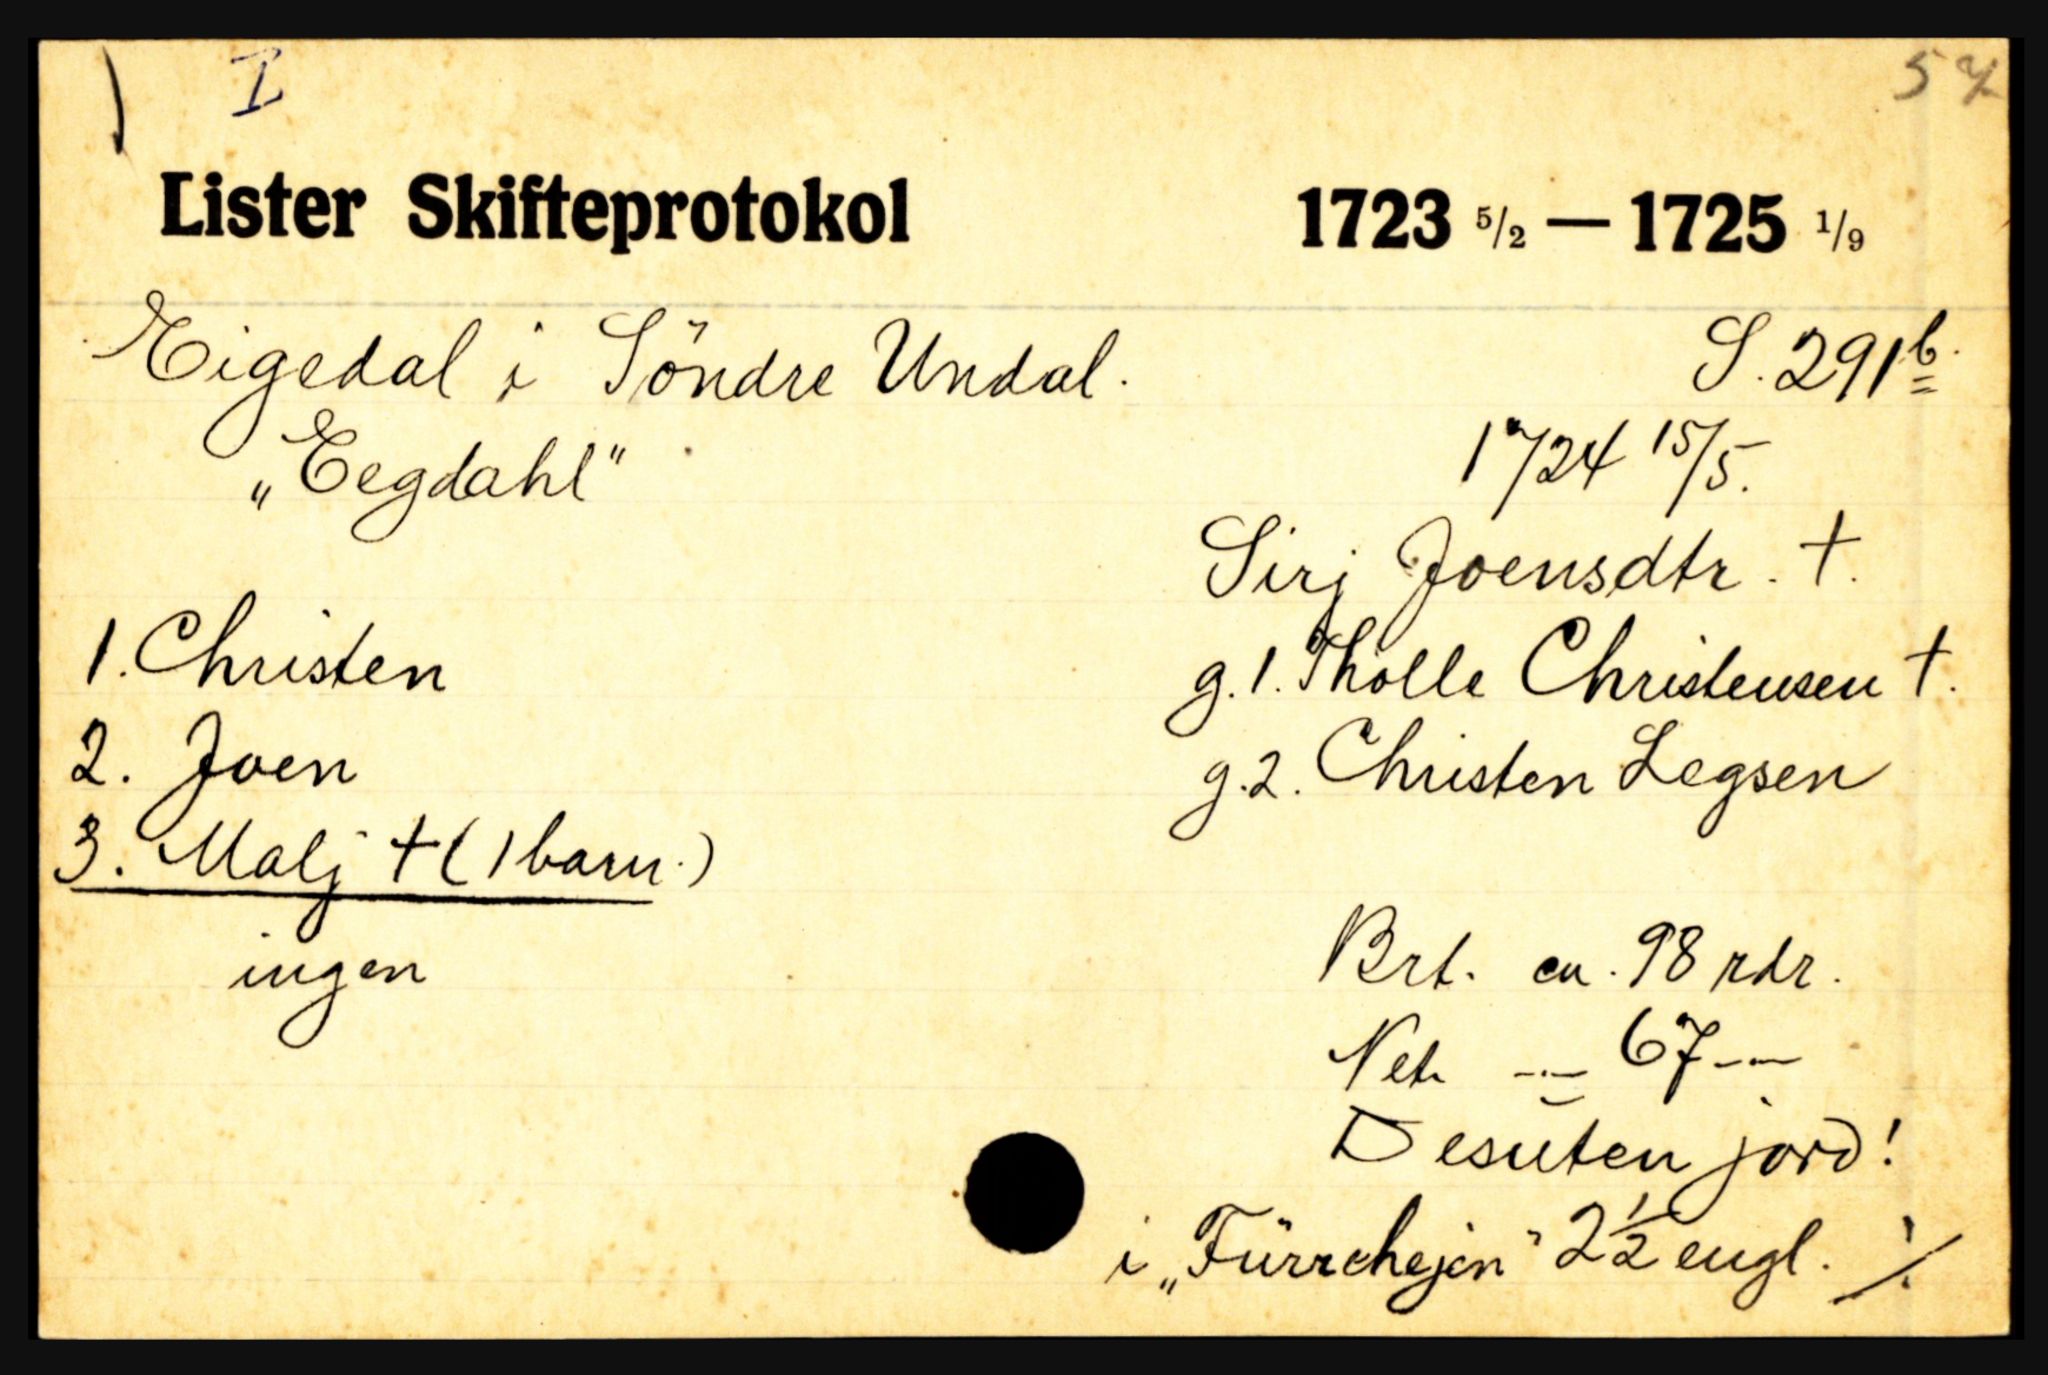 I
57
Lister Skifteprotokol 1723 5/2 — 1725 1/9
Eigedal i Söndre Undal. S. 291b
„Eegdahl“ 1724 15/5.
Sirj Joensdtr. †.
1. Christen g. 1. Tholle Christensen †.
2. Joen g. 2. Christen Legsen
3. Malj † (1 barn.)
ingen Brt. ca. 98 rdr.
Net. -"- 67 -"-
Desuten jord!
i „Fürrehejen“ 2 1/2 eugl. ./.